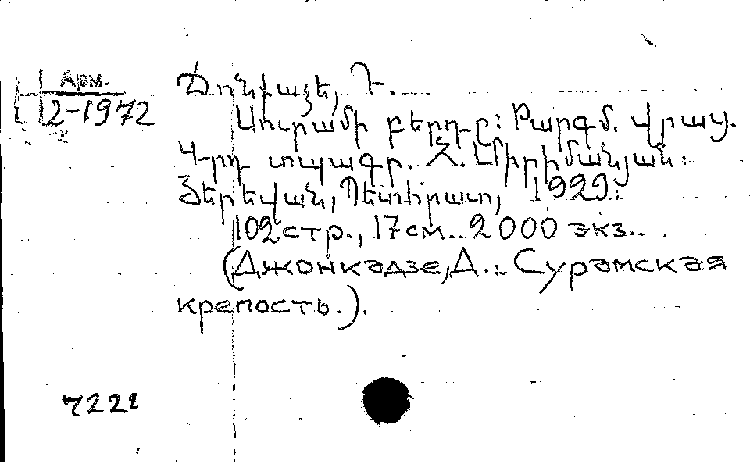 Арм.
2-1972
Ճոնկաձե, Դ.
Սուրամի բերդը: Թարգմ. վրաց.
4-րդ տպագր. Հ. Միրիմանյան:
Յերեվան, Պետհրատ, 1929:
102 стр., 17 см.. 2000 экз..
(Джонкадзе, Д.. Сурамская
крепость.).
7221